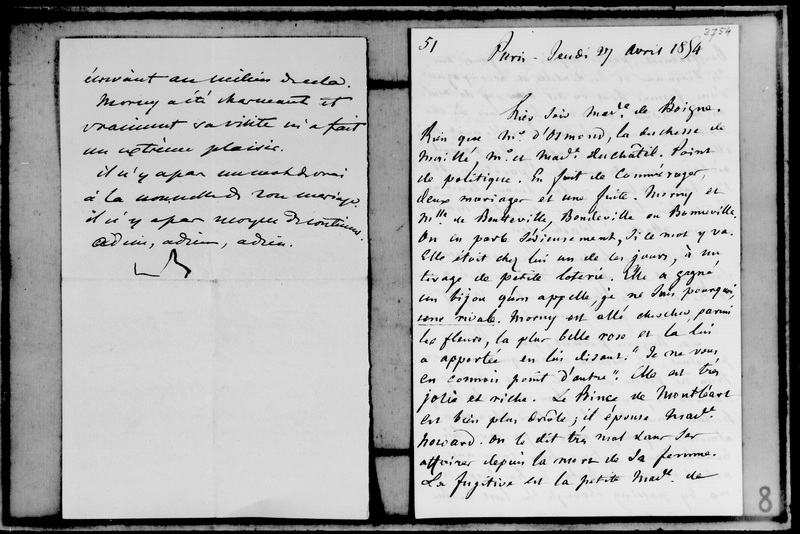 écrivant au milieu de cela.
Morny a été charmant et
vraiment sa visite m'a fait
un extrême plaisir.
il n'y a pas un mot de vrai
à la nouvelle de son mariage.
il n'y a pas moyen de continuer.
adieu, adieu, adieu.
51
2754
Paris - Jeudi 27 avril 1854
Hier soir mad.e de Boigne.
Rien que m.r d'Osmond, la duchesse de
Maillé, m.r et mad.e Duchâtel. Point
de politique. En fait de commérages,
deux mariages et une fuite. Morny et
Mlle de Boutteville, Bondeville ou Bonneville.
On en parle sérieusement, si ce mot y va.
Elle était chez lui un de ces jours, à un
tirage de petite loterie. Elle a gagné
un bijou qu'on appelle, je ne sais pourquoi,
sans rivale. Morny est allé chercher, parmi
les fleurs, la plus belle rose et la lui
a apportée en lui disant: "Je ne vous
en connais point d'autre". Elle est très
jolie et riche. Le Prince de Montléart
est bien plus drôle; il épouse mad.e
howard. on le dit très mal dans ses
affaires depuis la mort de sa femme.
La fugitive est la petite Mad.e de
8